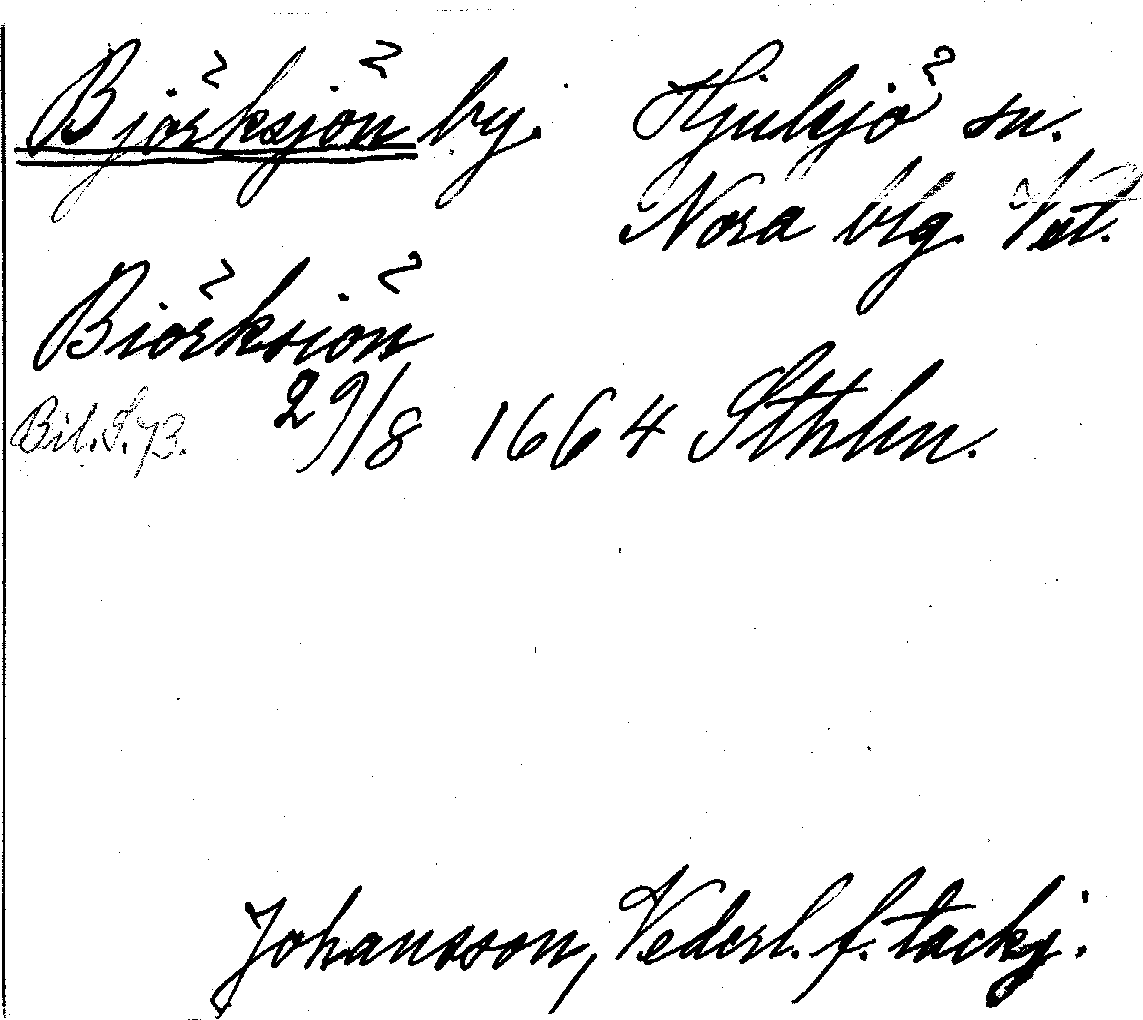 Björksjön by. Hjulsjö sn.
Nora blg. Vstl.
Biörksiön
Bil. S. 73. 29/8 1664 Sthlm.
Johansson, Vederl. f. tackj.